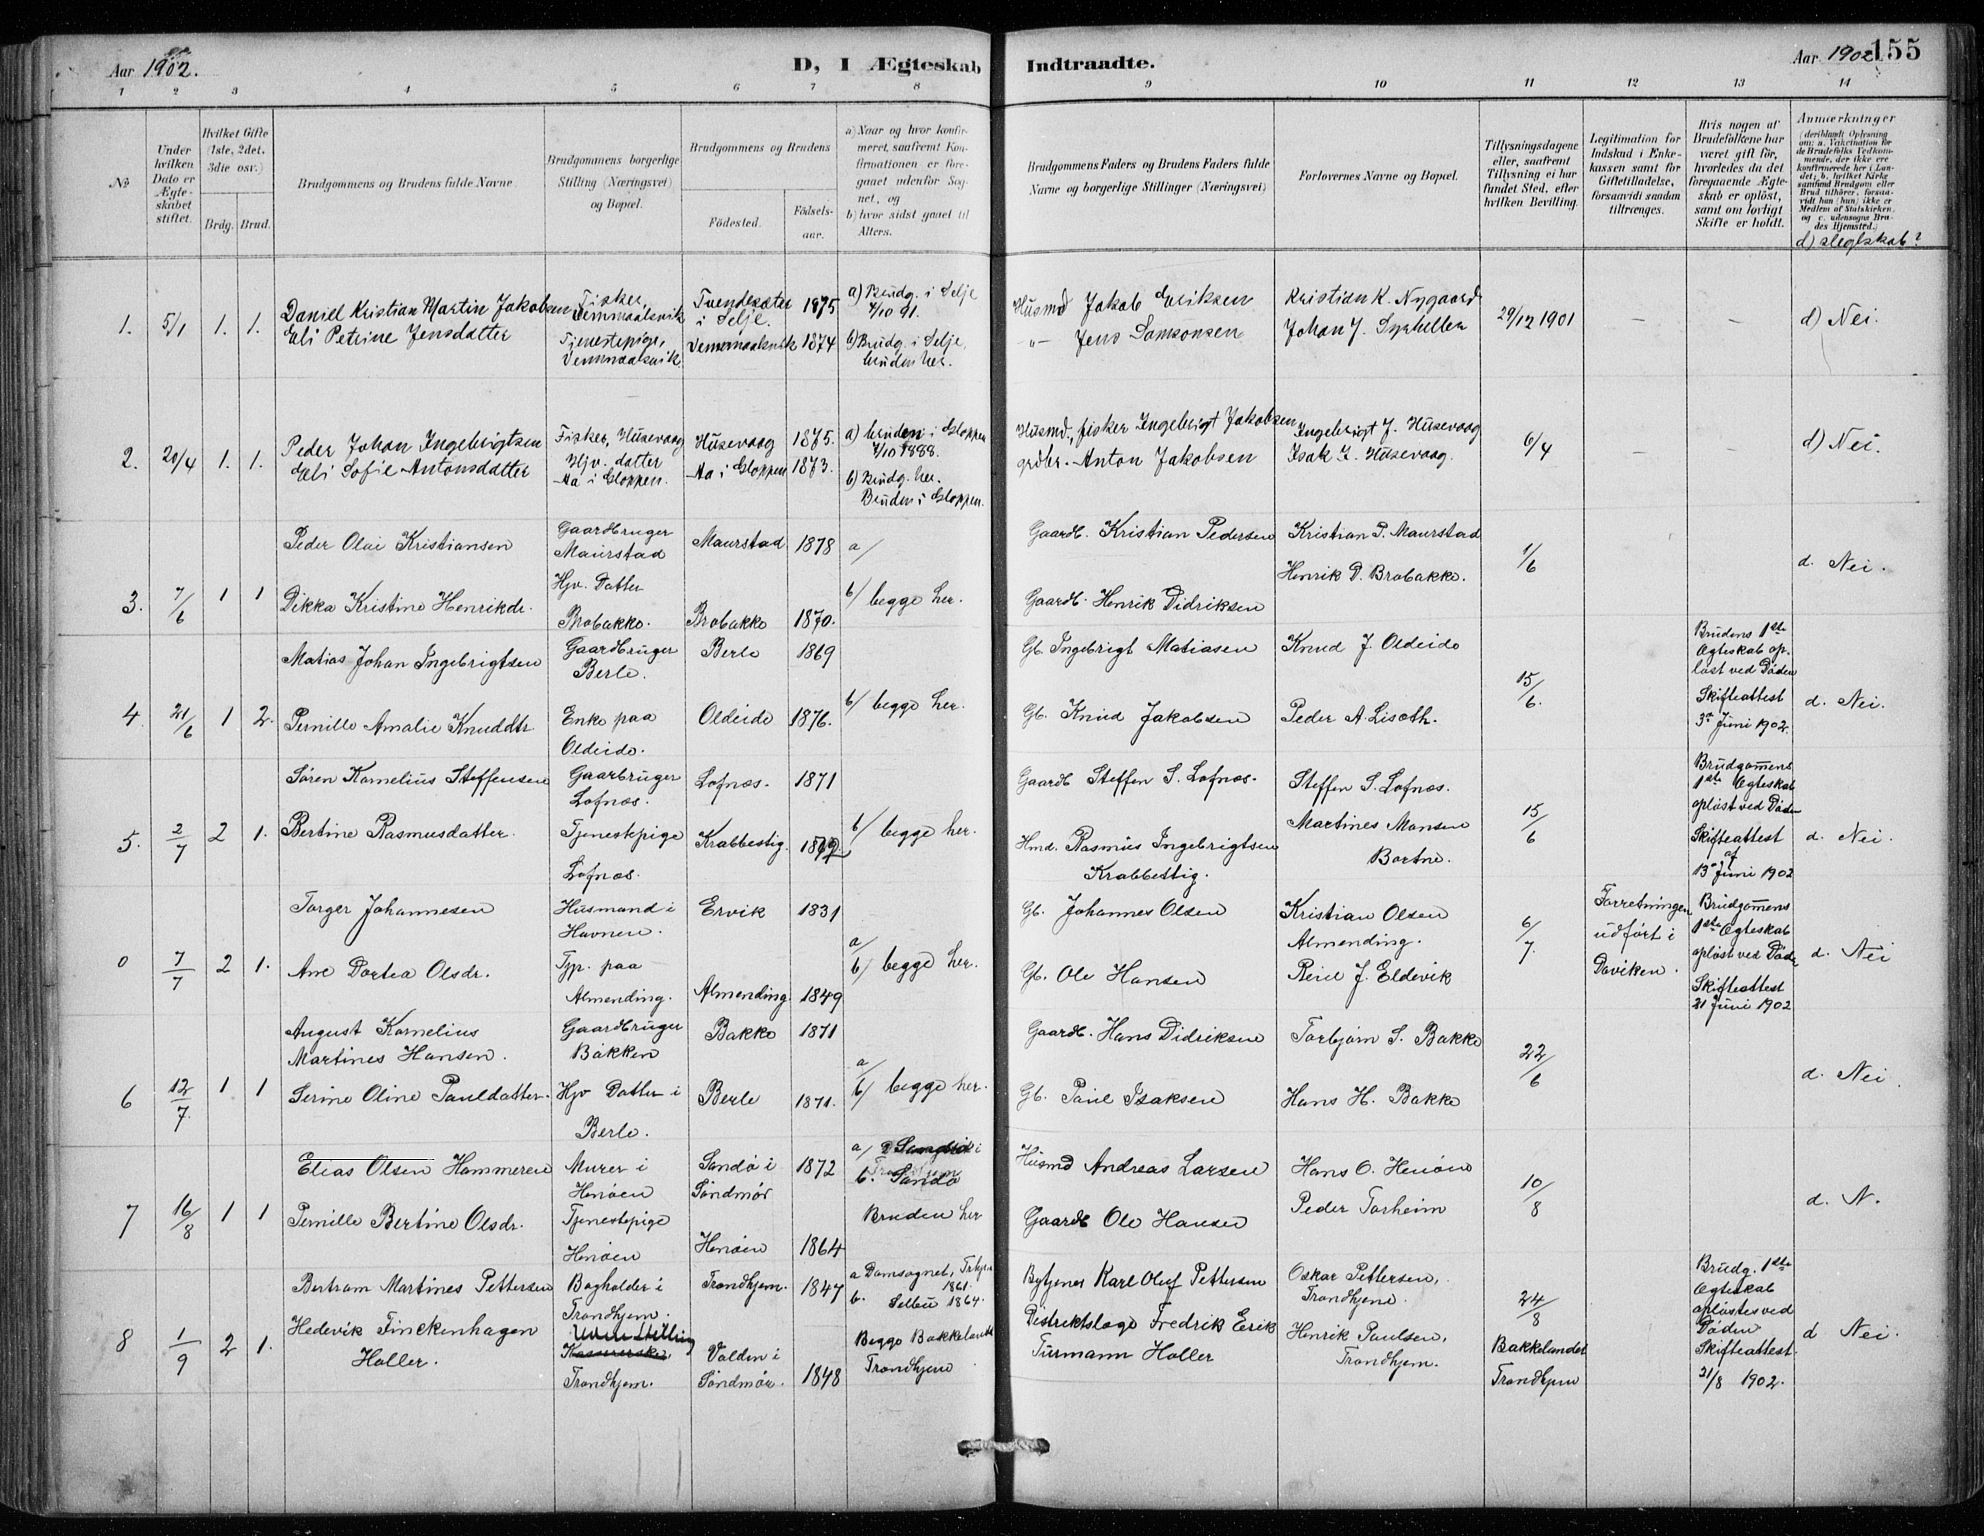 Aar 1902. D, I Ægteskab Indtraadte. Aar 1902 155
1 2 3 4 5 6 7 8 9 10 11 12 13 14
No
Under hvilken Dato er Ægteskabet stiftet.
Hvilket Gifte (1ste, 2det, 3die osv.)
Brdg. Brud.
Brudgommens og Brudens fulde Navne.
Brudgommens borgerlige Stilling (Næringsvei) og Bopæl.
Brudgommens og Brudens
Fødested. Fødselsaar.
a) Naar og hvor konfirmeret, saafremt Konfirmationen er foregaaet udenfor Sognet, og
b) hvor sidst gaaet til Alters.
Brudgommens Faders og Brudens Faders fulde Navne og borgerlige Stillinger (Næringsvei)
Forlovernes Navne og Bopæl.
Tillysningsdagene eller, saafremt Tillysning ei har fundet Sted, efter hvilken Bevilling.
Legitimation for Indskud i Enkekassen samt for Giftetilladelse, forsaavidt saadan tiltrænges.
Hvis nogen af Brudefolkene har været gift før, hvorledes da det foregaaende Ægteskab er opløst, samt om lovligt Skifte er holdt.
Anmærkninger
(deriblandt Oplysning om: a. Vakcination for de Brudefolks Vedkommende, der ikke ere konfirmerede her i Landet; b. hvilket Kirkesamfund Brudgom eller Brud tilhører, forsaavidt han (hun) ikke er Medlem af Statskirken, og c. udensogns Brudes Hjemsted.)
d) slegtskab?
1. 5/1 1. 1.
Daniel Kristian Martin Jakobsen
Eli Petrine Jensdatter
Fisker, Vemmaalsvik
Tjenestepige, Vemmaalsvik
Tvendesæter i Selje. 1875
Vemmaalsvik 1874
a) Brudg. i Selje
4/10 91.
b) Brudg. i Selje,
bruden her.
Husmd Jakob Eriksen
-"- Jens Samsonsen
Kristian K. Nygaard
Johan J.
29/12 1901 – –
d) Nei.
2. 20/4 1. 1.
Peder Johan Ingebrigtsen
Eli Sofie Antonsdatter
Fisker, Husevaag
Hjv. datter
Aa i Gloppen.
Husevaag 1875.
Aa i Gloppen 1873.
a) bruden i Gloppen
4/10 1888.
b) Brudg. her.
Bruden i Gloppen.
Husmd., fisker Ingebrigt Jakobsen
grdbr. Anton Jakobsen
Ingebrigt J. Husevaag
Isak I. Husevaag.
6/4 – –
d) Nei.
3. 7/6 1 1
Peder Olai Kristiansen
Dikka Kristine Henrikdr.
Gaardbruger Maurstad
Hjv. Datter
Brobakke.
Maurstad 1878
Brobakke 1870.
a/
b/ begge her.
Gaardb. Kristian Pedersen
Gaardb. Henrik Didriksen
Kristian P. Maurstad
Henrik D. Brobakke.
1/6
d. Nei.
4. 21/6 1 2.
Matias Johan Ingebrigtsen
Pernille Amalie Knuddtr
Gaardbruger Berle.
Enke paa
Oldeide.
Berle 1869
Oldeide 1876.
b/ begge her.
Gb. Ingebrigt Matiasen
Gb. Knud Jakobsen
Knud J. Oldeide
Peder A. Liseth.
15/6.
Brudens 1ste Ægteskab opløst ved Døden
Skifteattest
3de Juni 1902.
d. Nei.
5. 2/7 2 1.
Søren Kornelius Steffensen
Bertine Rasmusdatter.
Gaarbruger Lofnæs.
Tjenestepige
Lofnæs.
Lofnæs. 1871
Krabbestig.
b/ begge her.
Gaardb Steffen S. Lofnæs.
Hmd. Rasmus Ingebrigtsen
Krabbestig.
Steffen S. Lofnæs.
Martines Monsen
Bortne.
15/6
Brudgommens 1ste Ægteskab opløst ved Døden
Skifteattest af
13de Juni 1902
d. Nei.
0 7/7 2 1.
Torger Johannesen
Ane Dortea Olsdr.
Husmand i Havnen.
Tjp. paa
Almending.
Ervik 1831
Almending. 1849
a/
b/ begge her.
Gb. Johannes Olsen
Gb. Ole Hansen
Kristian Olsen
Almending.
J. Eldevik
6/7.
Forretningen udført i Daviken.
Brudgommens 1ste Ægteskab opløst ved Døden
Skifteattest
21 Juni 1902
d. Nei
6 12/7. 1 1
August Kornelius
Martines Hansen.
Serine Oline Pauldatter.
Gaardbruger Bakken
Hjv Datter i
Berle.
Bakke 1871
Berle 1871.
a/
b/ begge her.
Gaardb. Hans Didriksen
Gb. Paul Isaksen
Torbjørn S. Bakke
Hans H. Bakke
22/6
d. Nei.
7 16/8 1 1
Elias Olsen Hammeren
Pernille Bertine Olsdr.
Murer i Henøen
Tjenestepige
Henøen
Sandø i Søndmør 1872
Henøen 1864
a/ i
b. Sandø
Bruden her
Husmd Andreas Larsen
Gaardb Ole Hansen
Hans O. Henøen
Peder Torheim
10/8
d. N.
8 1/9 2 1.
Bertram Martines Pettersen
Hedevik Finckenhagen
Holler.
Bogholder i Trondhjem.
Uden Stilling
Trondhjem.
Trondhjem. 1847
Volden i Søndmør. 1848
a Domsognet, Trhjm 1861.
b. Selbu 1864.
Begge Bakkelandet
Trondhjem
Bytjener Karl Oluf Pettersen
Distriktslæge Fredrik Eerik
Turmann Holler
Oskar Pettersen,
Trondhjem.
Henrik Paulsen,
Trondhjem.
24/8
Bakkelandet
Trondhjem
Brudg. 1ste Ægteskab opløstes ved Døden
Skifteattest
21/8 1902.
d Nei.